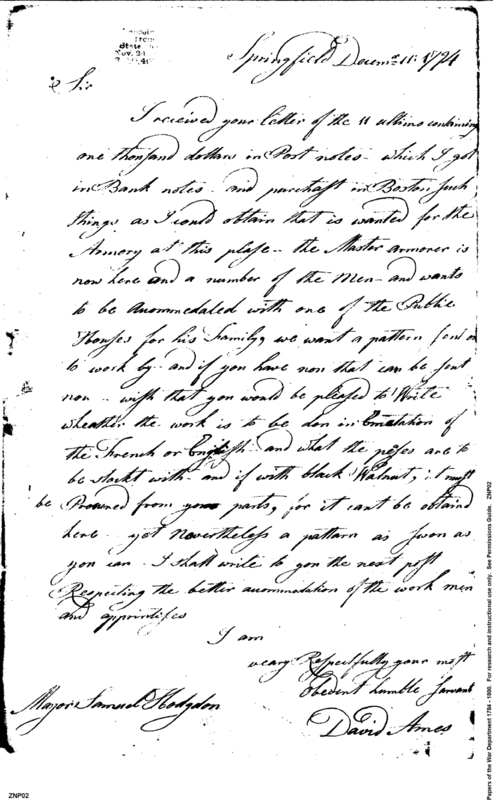 from
State
Nov. 24
Springfield Decemr. 11: 1794
Sir
I received your letter of the 11 ultimo containing
one thousand dollars in Post notes - which I got
in Bank notes - and purchast in Boston such
things as I could obtain that is wanted for the
Armory at this plase - the Master armorer is
now here and a number of the Men - and wants
to be Acommedaled with one of the Public
Houses for his Family, we want a pattern sent on
to work by - and if you have non that can be sent
non - wish that you would be pleased to Write
wheather the work is to be don in Emetation of
the French or English - and what the peses are to
be stockt with - and if with black Walnut, it must
be Procured from your parts, for it cant be obtaind
here - yet Nevertheless a pattarn as soon as
you can - I shall write to you the next post
Respecting the better acommodation of the work men
and apprintises
I am
veary Respectfully your most
Obedient humble Servant
David Ames
Mayor Samuel Hodgdon
ZNP02
Papers of the War Department 1784 - 1800. For research and instructional use only. See Permissions Guide. ZNP02